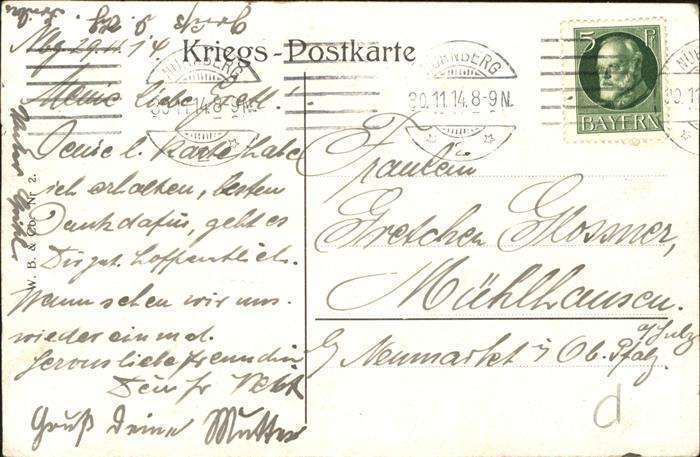 Nbg 29.11.14
Kriegs-Postkarte
NÜRNBERG
30.11.14.8-9N.
NÜRNBERG
30.11.14.8-9N.
5 Pf
BAYERN
Meine liebe
Deine l. Karte habe
ich erhalten, besten
Dank dafür, geht es
Dir gut hoffentlich.
Wann sehen wir uns
wieder einmal.
Gruß Deine Mutter
W. B. & Co. Nr. 2.
Fräulein
Gretchen Glossner,
Mühlhausen.
a/Sulz
Neumarkt i Ob. Pfalz.
d